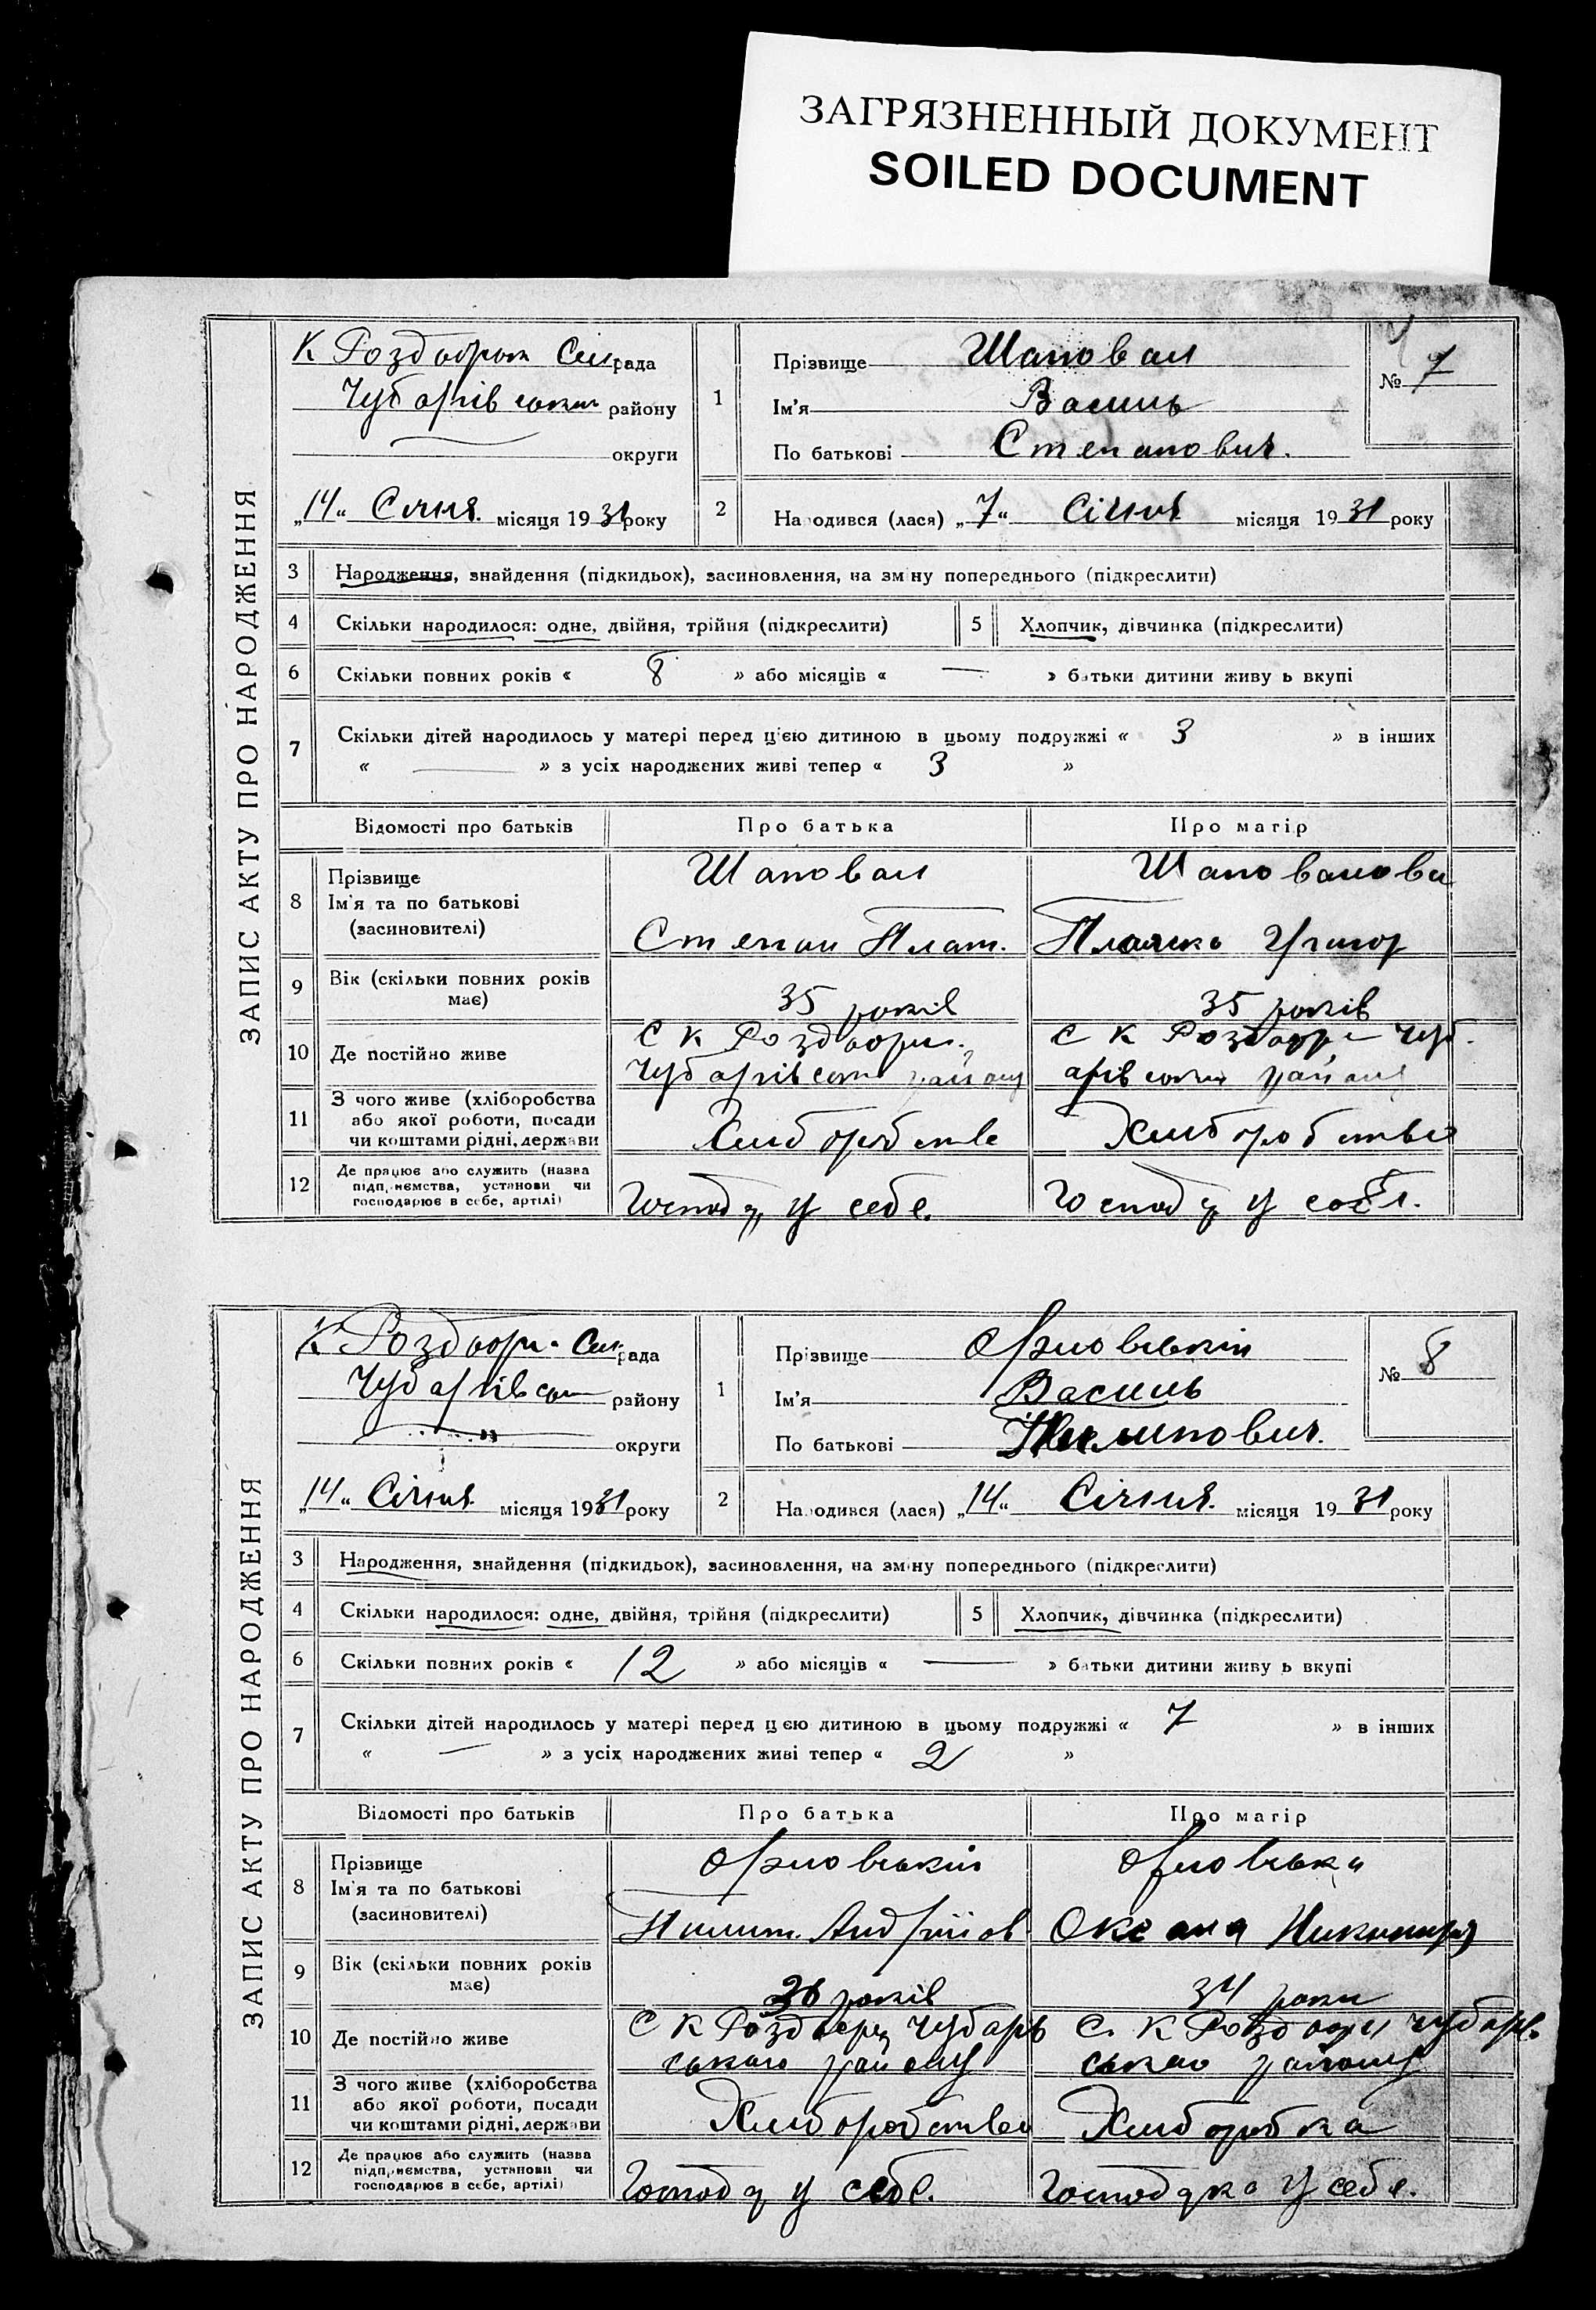 ЗАГРЯЗНЕННЫЙ ДОКУМЕНТ
SOILED DOCUMENT
ЗАПИС АКТУ ПРО НАРОДЖЕННЯ
К Роздори Сел рада
Чубарівськ району
округи
„14“ Січня місяця 1931 року
1
Прізвище Шаповал
Ім'я Василь
По батькові Степанович.
№ 7
2
Народився (лася) „7“ Січня місяця 1931 року
3 Народження, знайдення (підкидьок), засиновлення, на зміну попереднього (підкреслити)
4 Скільки народилося: одне, двійня, трійня (підкреслити)
5 Хлопчик, дівчинка (підкреслити)
6 Скільки повних років « 8 » або місяців « — » батьки дитини живуть вкупі
7 Скільки дітей народилось у матері перед цією дитиною в цьому подружжі « 3 » в інших
« — » з усіх народжених живі тепер « 3 »
Відомості про батьків Про батька Про матір
8 Прізвище
Ім'я та по батькові
(засиновителі)
Шаповал
Степан Плат.
Шаповалова
Григор
9 Вік (скільки повних років
має)
35 років
35 років
10 Де постійно живе
С К Роздори
Чубарівськ району
С К Роздори Чуб
арівськ району
11 З чого живе (хліборобства
або якої роботи, посади
чи коштами рідні, держави
Хліборобство
Хліборобство
12 Де працює або служить (назва
підприємства, установи чи
господарює в себе, артілі)
Господ у себе.
Господ у себе.
ЗАПИС АКТУ ПРО НАРОДЖЕННЯ
К Роздори Сел рада
Чубарівськ району
округи
„14“ Січня місяця 1931 року
1
Прізвище Орловський
Ім'я Василь
По батькові
№ 8
2
Народився (лася) „14“ Січня місяця 1931 року
3 Народження, знайдення (підкидьок), засиновлення, на зміну попереднього (підкреслити)
4 Скільки народилося: одне, двійня, трійня (підкреслити)
5 Хлопчик, дівчинка (підкреслити)
6 Скільки повних років « 12 » або місяців « — » батьки дитини живуть вкупі
7 Скільки дітей народилось у матері перед цією дитиною в цьому подружжі « 7 » в інших
« — » з усіх народжених живі тепер « 2 »
Відомості про батьків Про батька Про матір
8 Прізвище
Ім'я та по батькові
(засиновителі)
Орловський
Пилип Андріїов
Орловська
Оксана
9 Вік (скільки повних років
має)
років
34 роки
10 Де постійно живе
С К Роздори Чубарів
ського району
С. К Роздори Чубарів
ського району
11 З чого живе (хліборобства
або якої роботи, посади
чи коштами рідні, держави
Хліборобство
Хліборобка
12 Де працює або служить (назва
підприємства, установи чи
господарює в себе, артілі)
Господ у себе.
у себе.